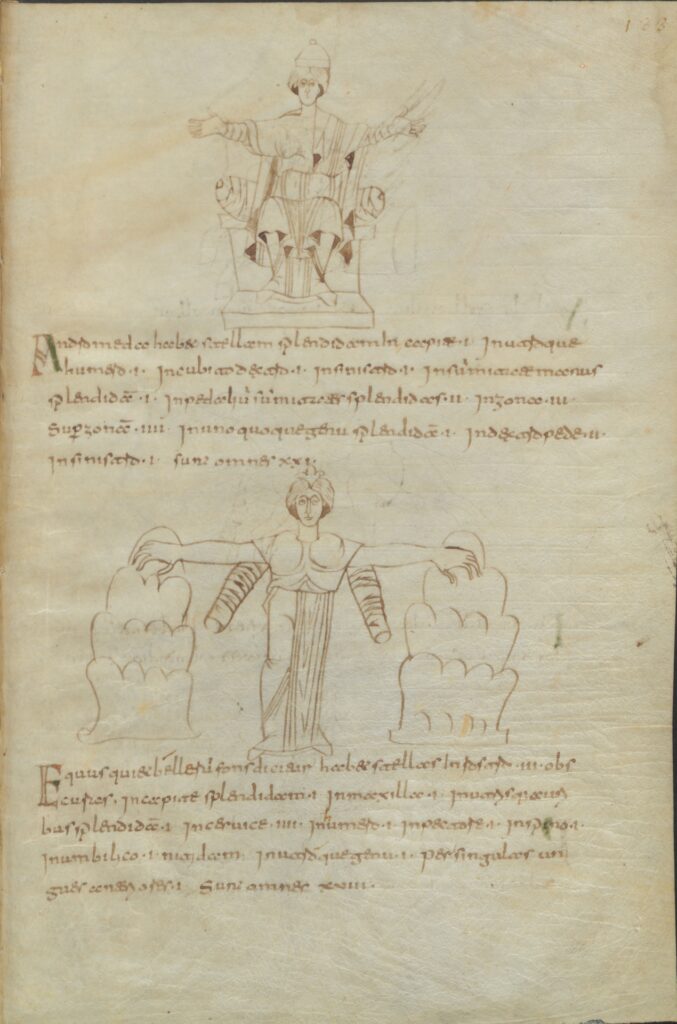 133
Andromeda habet stellam splendidam In capite ·I· In utroque
humero ·I· In cubito dextro ·I· In sinistro ·I· In manus
splendidā ·I· splendidas ·II· In zona ·III·
Supzonā ·IIII· In uno quoque genu splendidā ·I· In dextro pede ·II·
In sinistro ·I· Sunt omnes XXI·
Equus qui et fons dicitur habet stellas In rostro ·III· obs
curas· In capite splendidam ·I· In maxilla ·I· In
bus splendidā ·I· In cervice ·IIII· In umero ·I· In pectore ·I· In spina ·I·
In umbilico ·I· In utroque genu ·I· per singulas un
gues ·I· Sunt omnes XXIII·